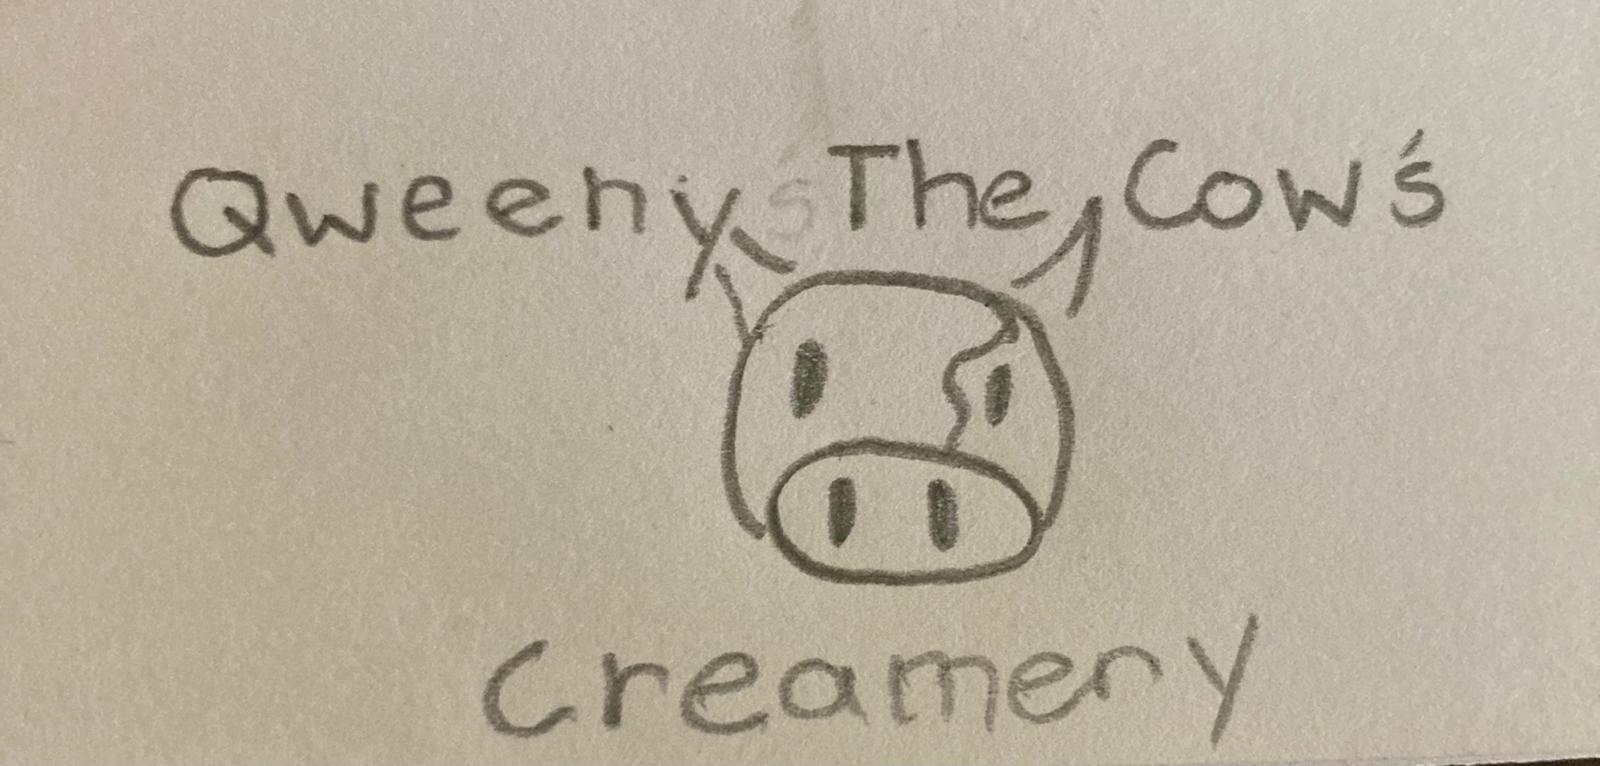 Qweeny The Cow's
Creamery